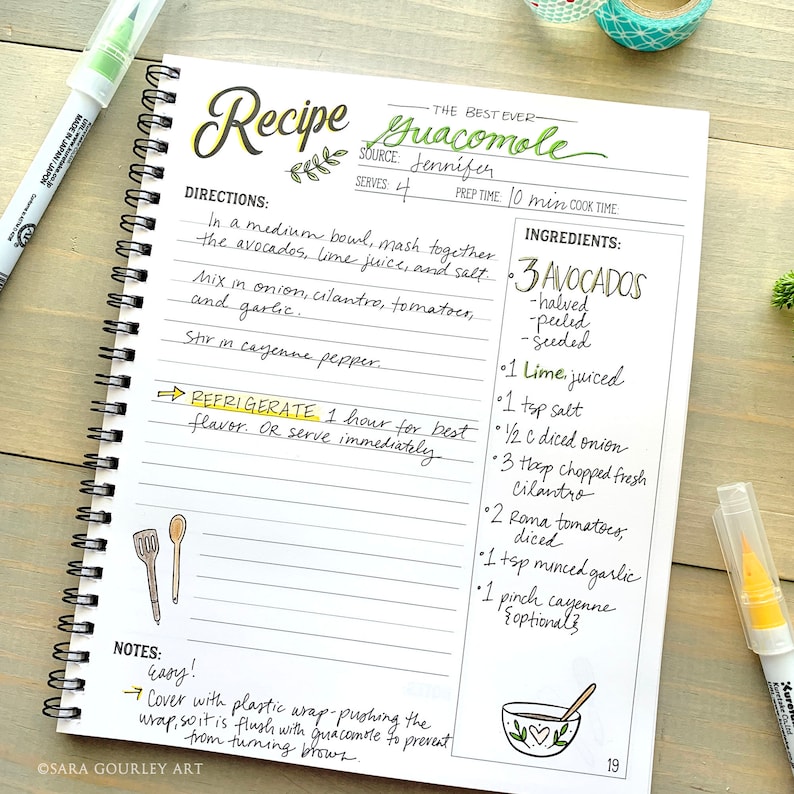 Recipe
THE BEST EVER
guacomole
SOURCE: Jennifer
SERVES: 4 PREP TIME: 10 min COOK TIME:
DIRECTIONS:
In a medium bowl, mash together
the avocados, lime juice, and salt.
Mix in onion, cilantro, tomatoes,
and garlic.
Stir in cayenne pepper.
→ REFRIGERATE 1 hour for best
flavor. OR serve immediately
INGREDIENTS:
• 3 AVOCADOS
-halved
-peeled
-seeded
• 1 Lime, juiced
• 1 tsp salt
• 1/2 C diced onion
• 3 tbsp chopped fresh
cilantro
• 2 Roma tomatoes,
diced
• 1 tsp minced garlic
• 1 pinch cayenne
{optional}
NOTES:
Easy!
→ Cover with plastic wrap-pushing the
wrap, so it is flush with guacomole to prevent
from turning brown.
19
©SARA GOURLEY ART
MADE IN JAPAN/JAPON
Kuretake Co.,Ltd